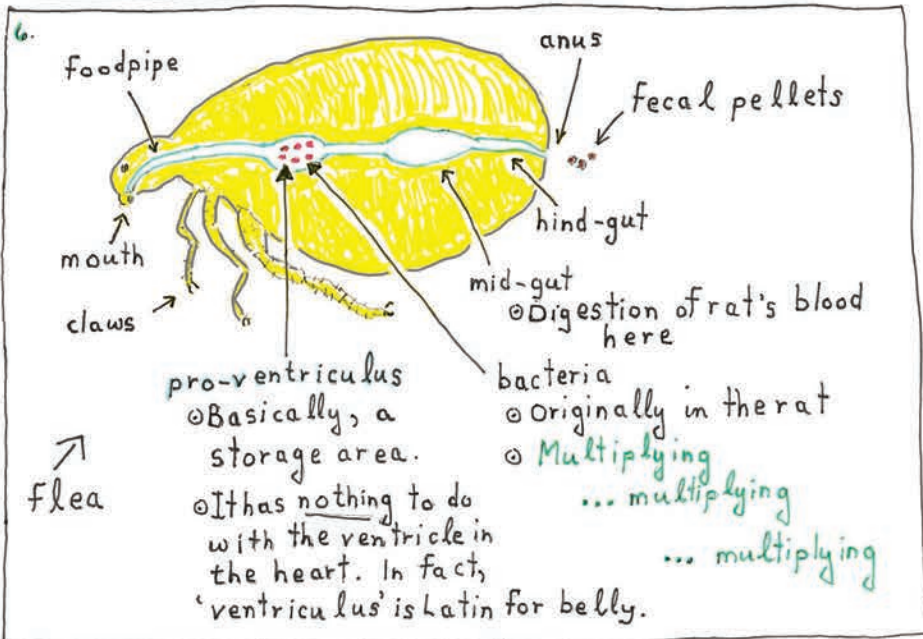 6.
foodpipe
anus
fecal pellets
mouth
claws
hind-gut
mid-gut
⊙Digestion of rat's blood
here
pro-ventriculus
⊙Basically, a
storage area.
⊙It has nothing to do
with the ventricle in
the heart. In fact,
'ventriculus' is Latin for belly.
bacteria
⊙ Originally in the rat
⊙ Multiplying
... multiplying
... multiplying
flea